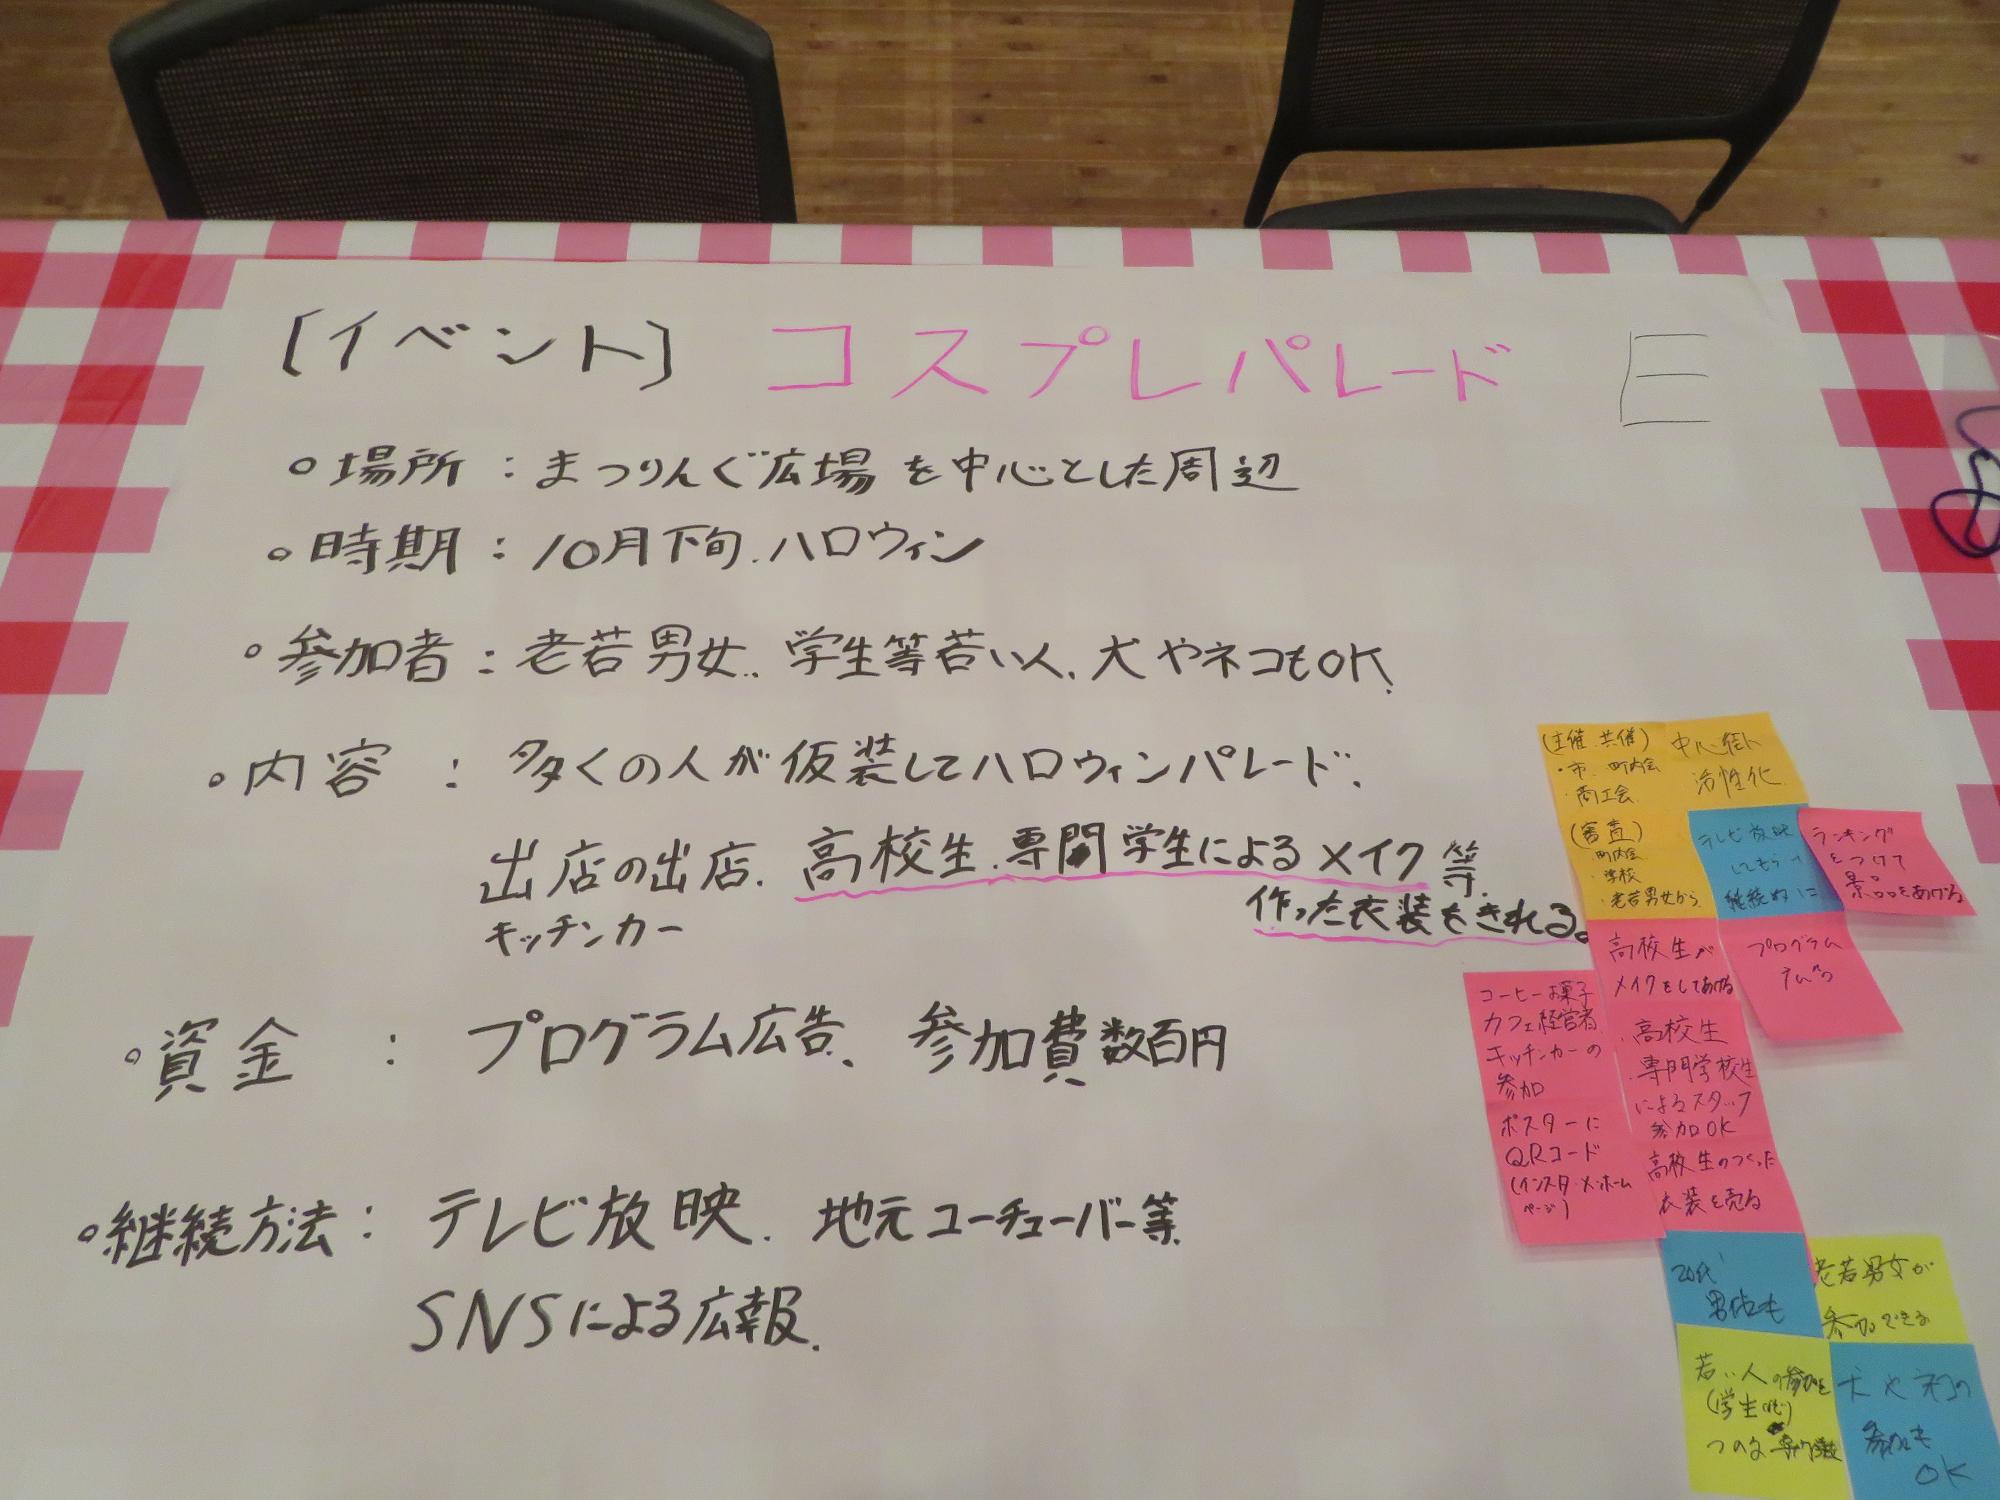 〔イベント〕 コスプレパレード
◦場所：まつりんぐ広場を中心とした周辺
◦時期：10月下旬.ハロウィン
◦参加者：老若男女、学生等若い人、犬やネコもOK.
◦内容：多くの人が仮装してハロウィンパレード.
出店の出店. 高校生.専門学生によるメイク等.
キッチンカー
作った衣装をきれる。
◦資金：プログラム広告、参加費数百円
◦継続方法：テレビ放映. 地元ユーチューバー等.
SNSによる広報.
(主催.共催)
・市.町内会
・商工会.
中心街
活性化
(審査)
・町内会
・学校
・老若男女から
テレビ放映
してもらい
継続的に
ランキング
をつけて
景品をあげる
高校生が
メイクをしてあげる
プログラム
コーヒーお菓子
カフェ経営者
キッチンカーの
参加
ポスターに
QRコード
(インスタ・メ・ホーム
ページ)
高校生
専門学校生
によるスタッフ
参加OK
高校生のつくった
衣装を売る
20代
老若男女が
参加できる
若い人の参加を
(学生
犬やネコの
参加も
OK